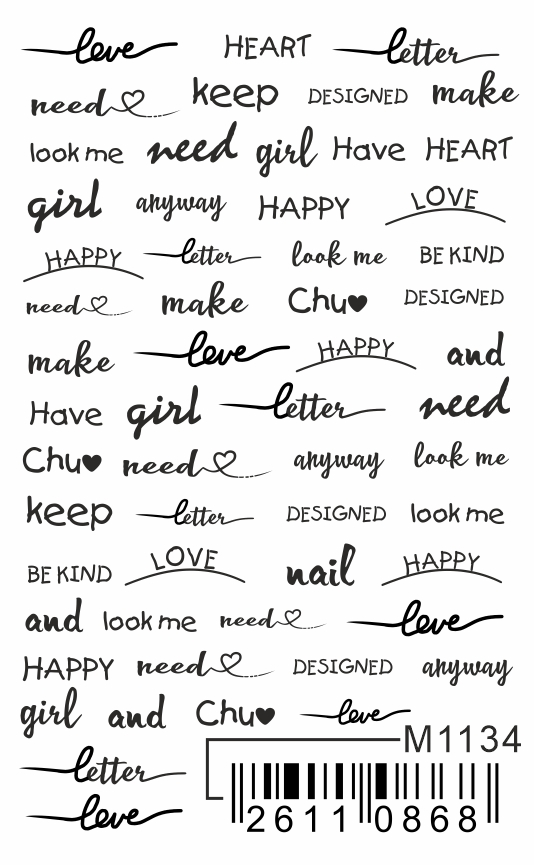 love HEART letter
need keep DESIGNED make
look me need girl Have HEART
girl anyway HAPPY LOVE
HAPPY letter look me BE KIND
need make Chu♥ DESIGNED
make love HAPPY and
Have girl letter need
Chu♥ need anyway look me
keep letter DESIGNED look me
BE KIND LOVE nail HAPPY
and look me need love
HAPPY need DESIGNED anyway
girl and Chu♥ love
M1134
letter
love
2611 0868